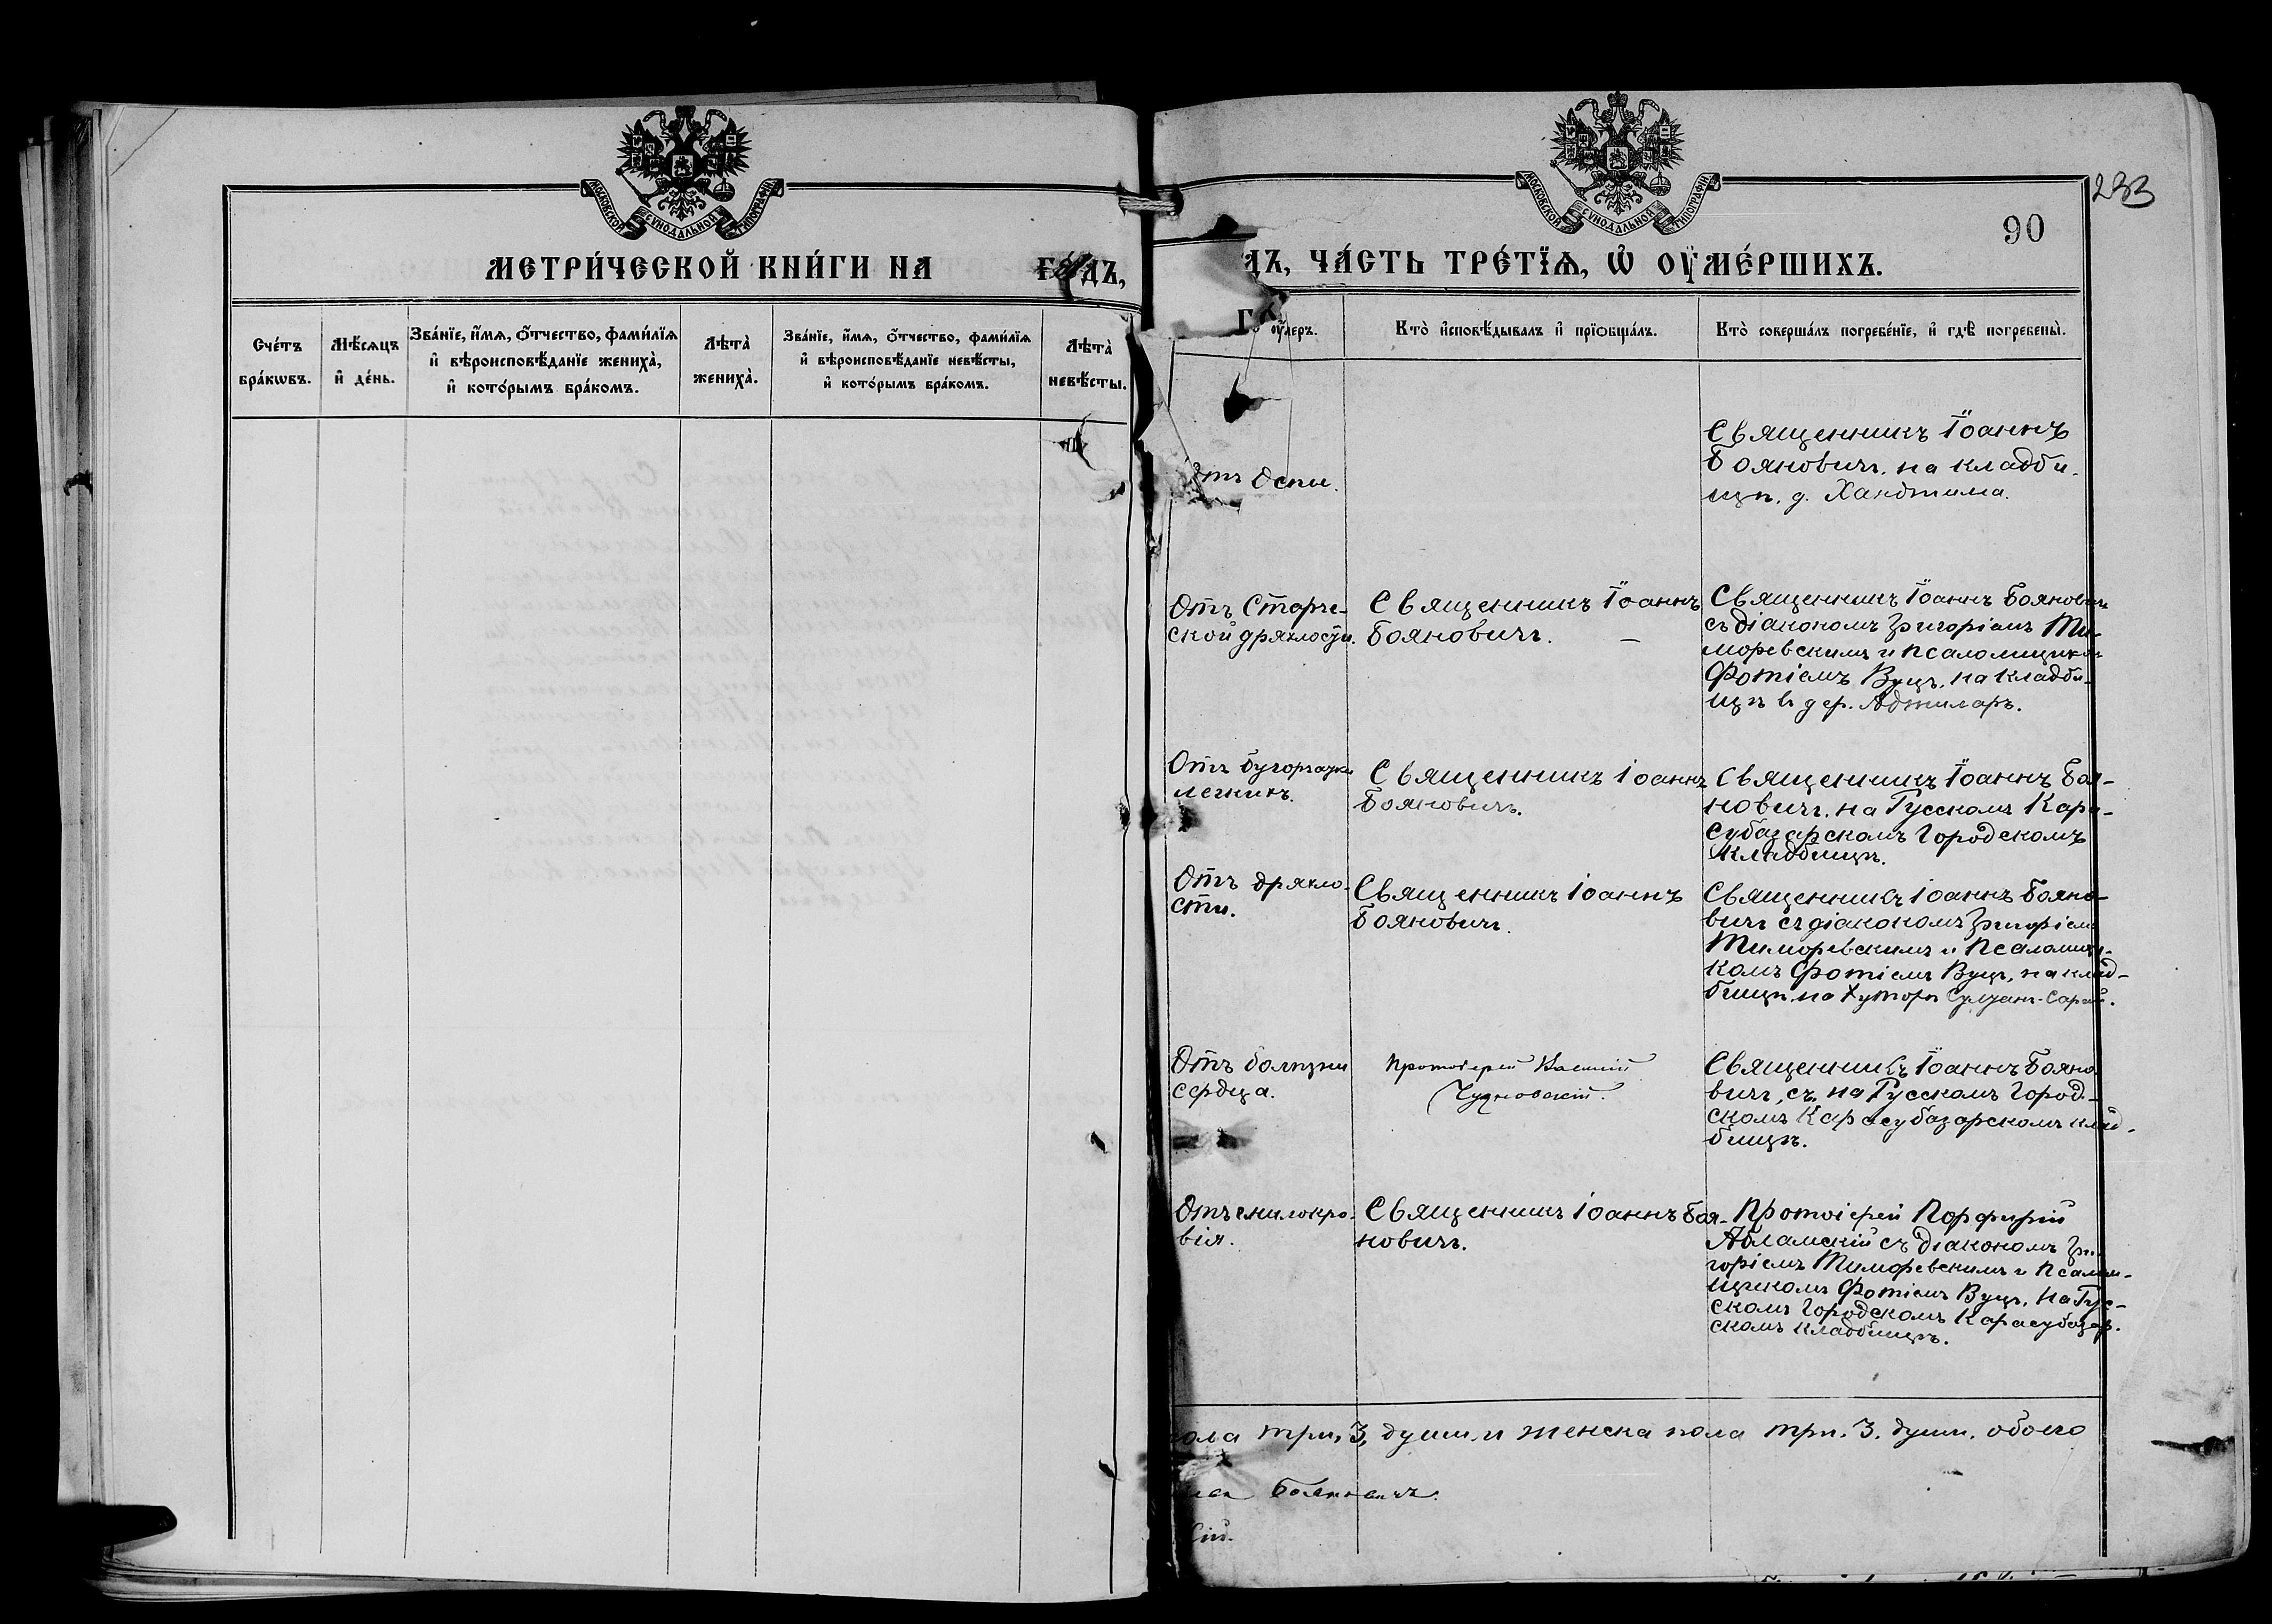 МОСКОВСКОЙ СѴНОДАЛЬНОЙ ТИПОГРАФІИ
МЕТРИ́ЧЕСКОЙ КНИ́ГИ НА ГО́ДЪ,
Сче́тъ бра́кωвъ.
Мѣ́сяцъ и҆ де́нь.
Зва́нїе, и҆́мѧ, ѻ҆́тчество, фами́лїѧ
и҆ вѣроисповѣ́данїе жениха̀,
и҆ кото́рымъ бра́комъ.
Лѣта̀ жениха̀.
Зва́нїе, и҆́мѧ, ѻ҆́тчество, фами́лїѧ
и҆ вѣроисповѣ́данїе невѣ́сты,
и҆ кото́рымъ бра́комъ.
Лѣта̀ невѣ́сты.
МОСКОВСКОЙ СѴНОДАЛЬНОЙ ТИПОГРАФІИ
233
90
ДЪ, ЧА́СТЬ ТРЕ́ТЇѦ, Ѡ҆ ОУ҆МЕ́РШИХЪ.
оу҆́меръ.
Кто̀ и҆сповѣ́дывалъ и҆ прїѻбща́лъ.
Кто̀ соверша́лъ погребе́нїе, и҆ гдѣ̀ погребены̀.
Отъ Оспи.
Священникъ Іоаннъ
Бояновичъ, на кладби-
щѣ, д. Ханджима.
Отъ Старче-
ской дряхлости.
Священникъ Іоаннъ
Бояновичъ. –
Священникъ Іоаннъ Бояновичъ
съ діакономъ Григоріемъ Ти-
моревскимъ и псаломщико-
Фотіемъ Вуцъ, на кладби-
щѣ въ дер. Аджиларъ.
Отъ бугорчатки
легкихъ.
Священникъ Іоаннъ
Бояновичъ.
Священникъ Іоаннъ Боя-
новичъ, на Русскомъ Кара-
субазарскомъ Городскомъ
кладбищѣ.
Отъ дряхло-
сти.
Священникъ Іоаннъ
Бояновичъ.
Священникъ Іоаннъ Бояно-
вичъ съ діакономъ Григоріемъ
Тиморевскимъ и Псаломщи-
комъ Фотіемъ Вуцъ, на клад-
бищѣ на Хуторѣ Султанъ-Сарай.
Отъ болѣзни
сердца.
Протоіерей Василій
Чудновскій.
Священникъ Іоаннъ Бояно-
вичъ, съ, на Русскомъ Город-
скомъ Карасубазарскомъ клад-
бищѣ.
Отъ гнилокро-
вія.
Священникъ Іоаннъ Боя-
новичъ.
Протоіерей Порфирій
Абламскій съ діакономъ Гри-
горіемъ Тиморевскимъ и Псалом-
щикомъ Фотіемъ Вуцъ, на Рус-
скомъ Городскомъ Карасубазар-
скомъ кладбищѣ.
пола три, 3, души и женска пола три. 3. души. обоего
Бояновичъ.